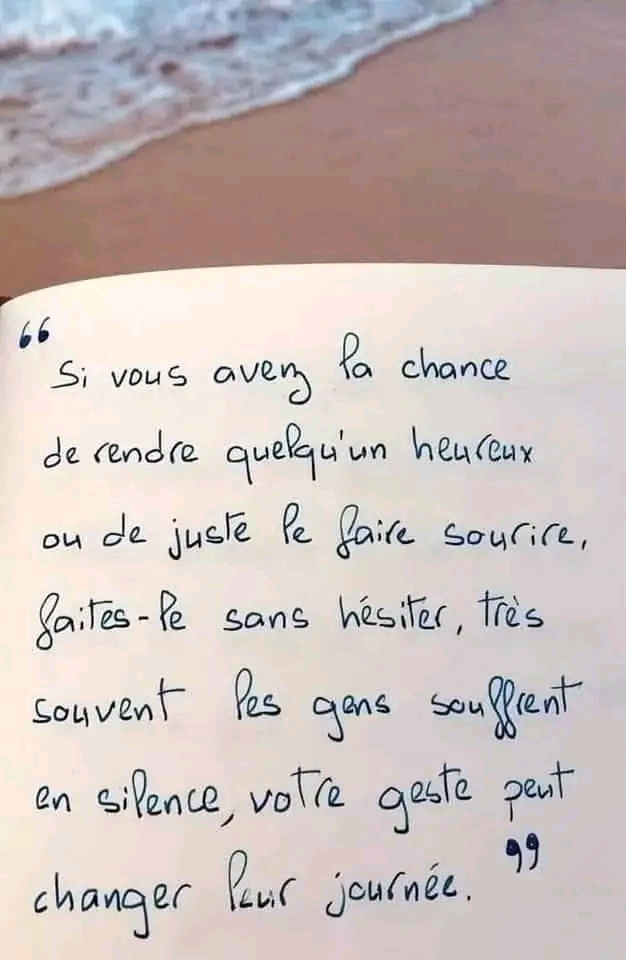 “
Si vous avez la chance
de rendre quelqu'un heureux
ou de juste le faire sourire,
faites-le sans hésiter, très
souvent les gens souffrent
en silence, votre geste peut
changer leur journée. ”